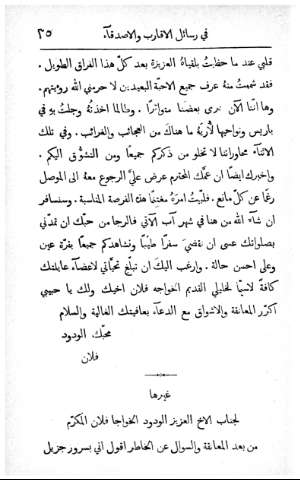 في رسائل الاقارب والاصدقاء ٢٥
قلبي عند ما حظيت بلقياهُ العزيزة بعد كلّ هذا الفراق الطويل.
فقد شممت منهُ عرف جميع الاحبة البعيدين لا حرمني الله رؤيتهم.
وها اننا الآن نرى بعضنا متواترًا. وطالما اخذتهُ وجلتُ بهِ في
باريس ونواحيها لأريَهُ ما هناك من العجائب والغرائب. وفي تلك
الاثناء محاوراتنا لا تخلو من ذكركم جميعًا ومن التشوُّق اليكم.
واخبرك ايضًا ان عمَّك المحترم عرض عليَّ الرجوع معهُ الى الموصل
رغمًا عن كلّ مانع. فلبَّيت امرَهُ مغتنمًا هذه الفرصة المناسبة. وسنسافر
ان شاء الله من هنا في شهر آب الآتي فالرجا من حبّك ان تمدّني
بصلواتك عسى ان نقضيَ سفرًا طيّبًا ونشاهدكم جميعًا بقرَّة عين
وعلى احسن حالة. وارغب اليك ان تبلّغ تحيَّاتي لاعضاء عايلتك
كافةً لا سيَّما لخليلي القديم الخواجه فلان اخيك ولك يا حبيبي
اكرّر المعانقة والاشواق مع الدعاء بعافيتك الغالية والسلام
محبّك الودود
فلان
غيرها
لجناب الاخ العزيز الودود الخواجا فلان المكرَّم
من بعد المعانقة والسوال عن الخاطر اقول اني بسرور جزيل